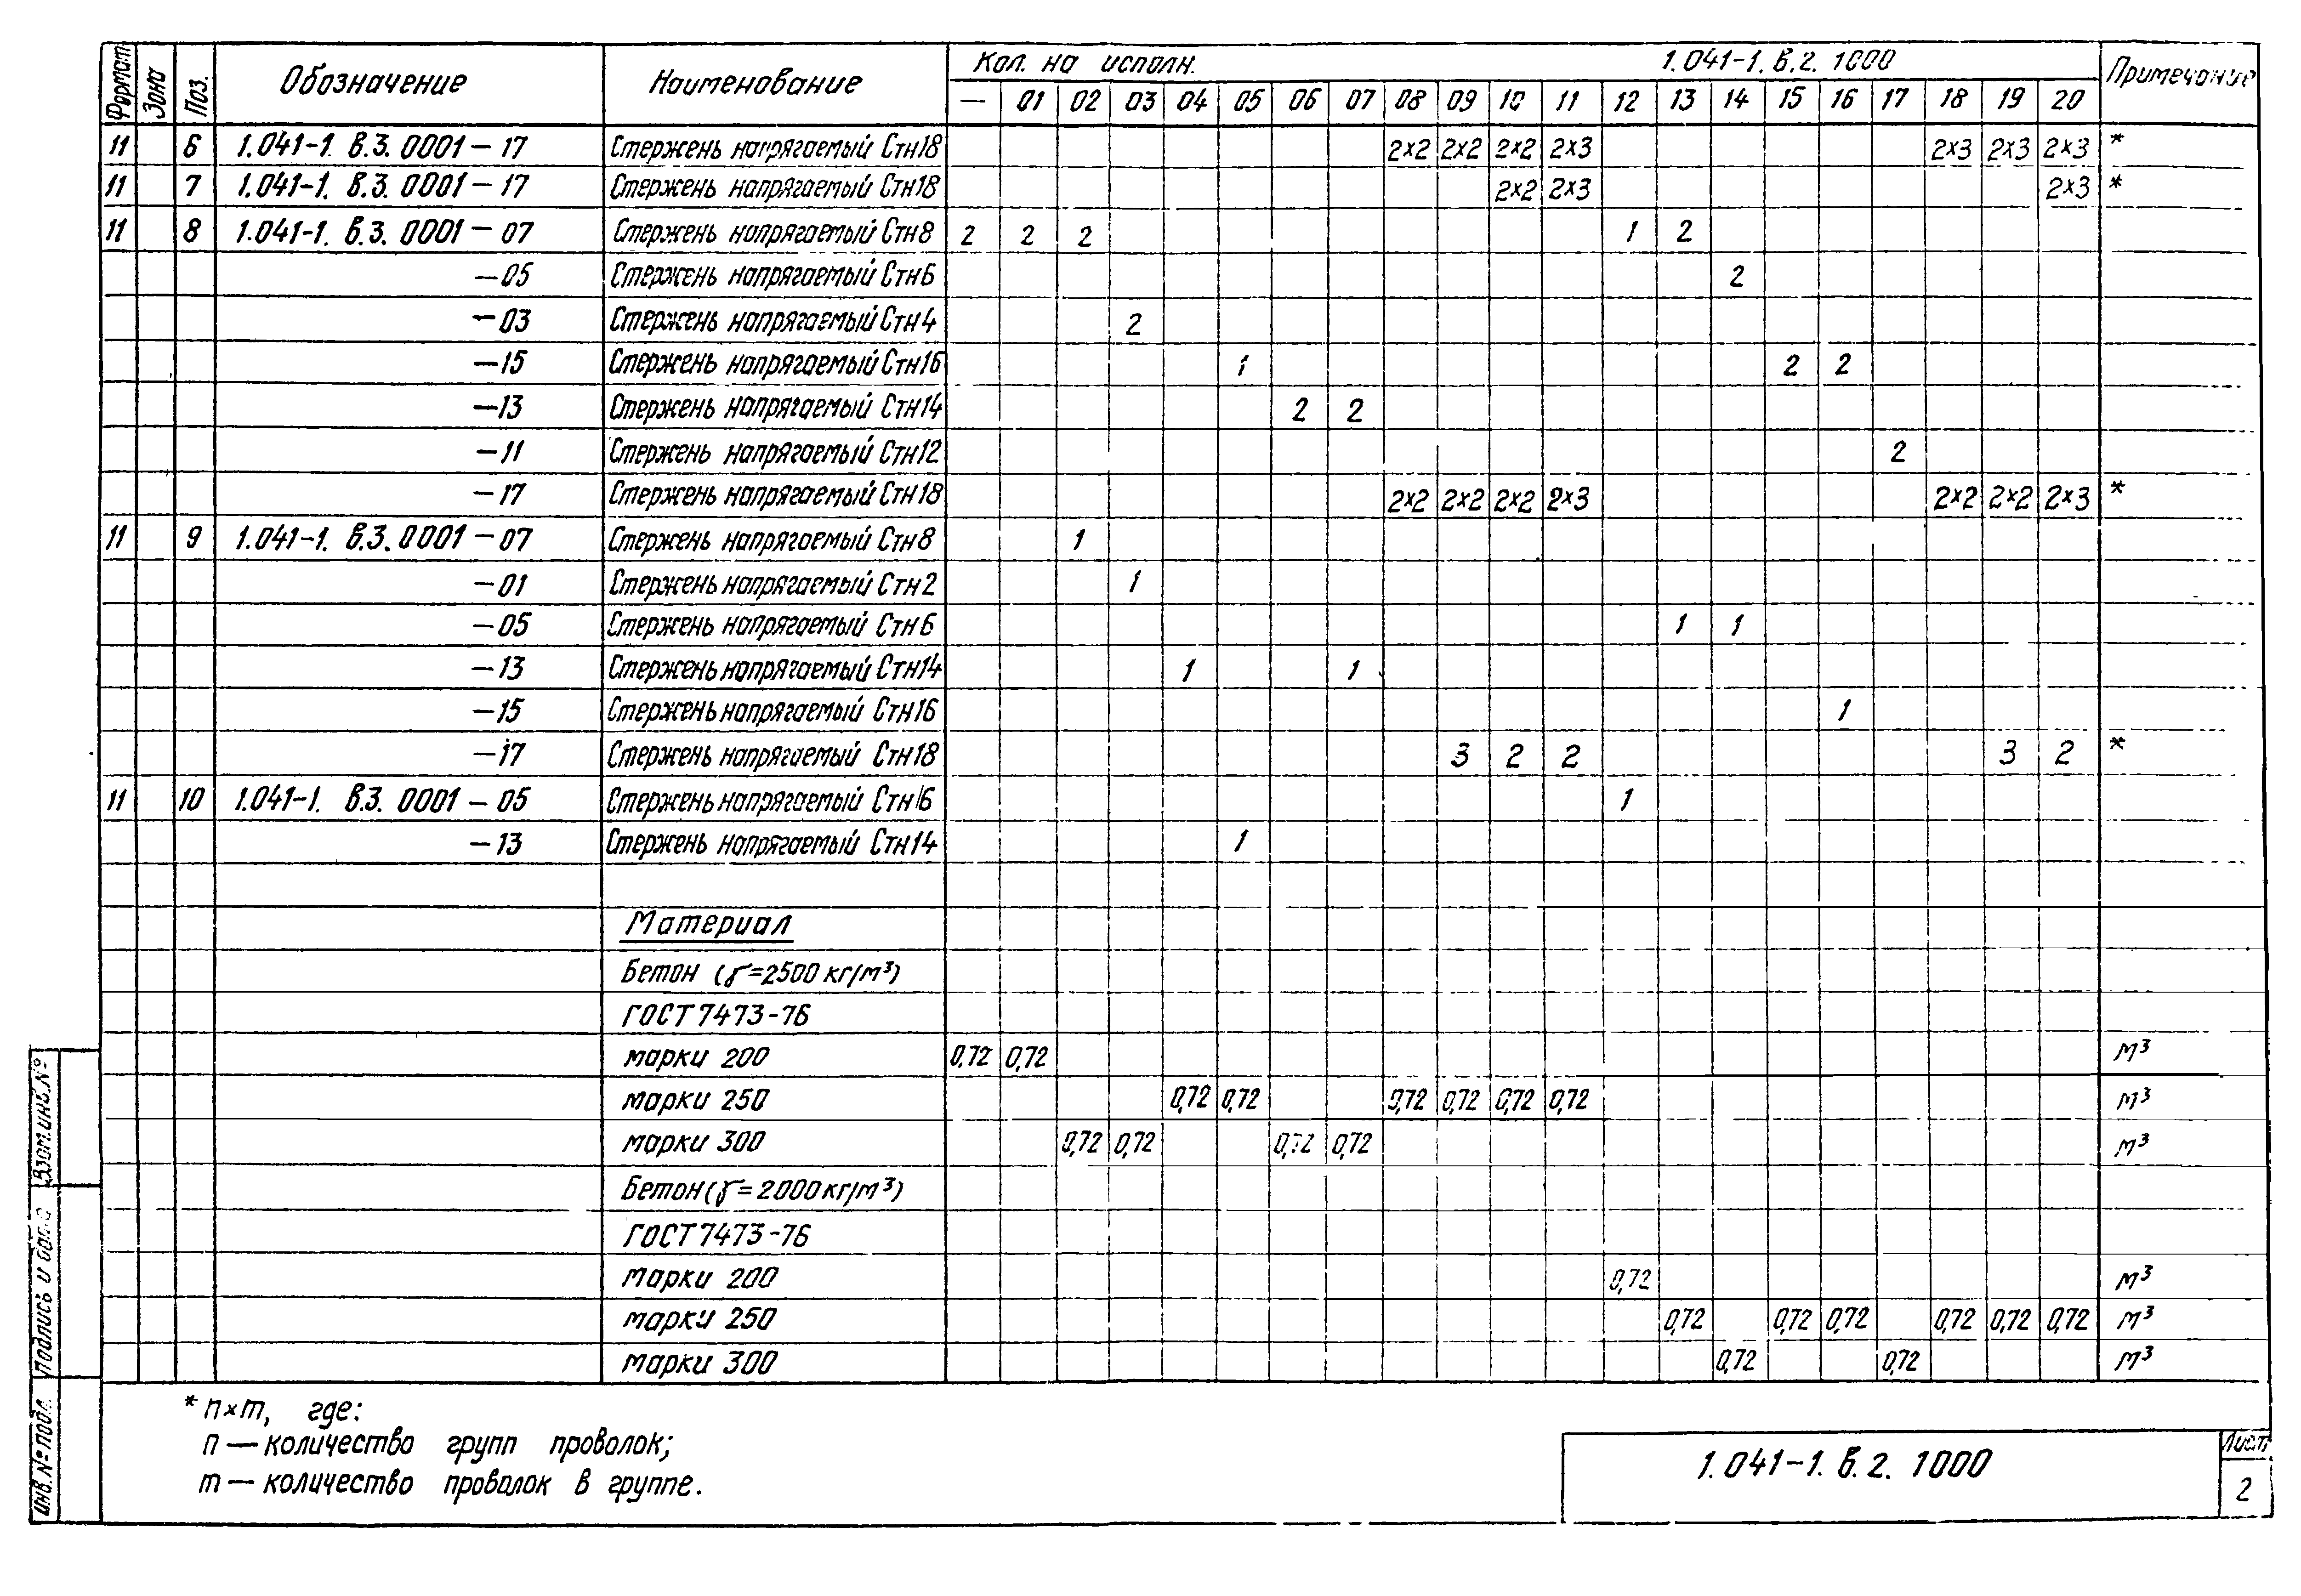 Формат Зона Поз. Обозначение Наименование Кол. на исполн. 1.041-1. в.2. 1000 Примечание
— 01 02 03 04 05 06 07 08 09 10 11 12 13 14 15 16 17 18 19 20
11 6 1.041-1. в.3. 0001 — 17 Стержень напрягаемый Стн18 2×2 2×2 2×2 2×3 2×3 2×3 2×3 *
11 7 1.041-1. в.3. 0001 — 17 Стержень напрягаемый Стн18 2×2 2×3 2×3 *
11 8 1.041-1. в.3. 0001 — 07 Стержень напрягаемый Стн8 2 2 2 1 2
—05 Стержень напрягаемый Стн6 2
—03 Стержень напрягаемый Стн4 2
—15 Стержень напрягаемый Стн16 1 2 2
—13 Стержень напрягаемый Стн14 2 2
—11 Стержень напрягаемый Стн12 2
—17 Стержень напрягаемый Стн18 2×2 2×2 2×2 2×3 2×2 2×2 2×3 *
11 9 1.041-1. в.3. 0001 — 07 Стержень напрягаемый Стн8 1
—01 Стержень напрягаемый Стн2 1
—05 Стержень напрягаемый Стн6 1 1
—13 Стержень напрягаемый Стн14 1 1
—15 Стержень напрягаемый Стн16 1
—17 Стержень напрягаемый Стн18 3 2 2 3 2 *
11 10 1.041-1. в.3. 0001 — 05 Стержень напрягаемый Стн6 1
—13 Стержень напрягаемый Стн14 1
Материал
Бетон (γ=2500 кг/м³)
ГОСТ 7473-76
марки 200 0,72 0,72 м³
марки 250 0,72 0,72 0,72 0,72 0,72 0,72 м³
марки 300 0,72 0,72 0,72 0,72 м³
Бетон (γ=2000 кг/м³)
ГОСТ 7473-76
марки 200 0,72 м³
марки 250 0,72 0,72 0,72 0,72 0,72 0,72 м³
марки 300 0,72 0,72 м³
* n×m, где:
n — количество групп проволок;
m — количество проволок в группе.
1.041-1. в.2. 1000
Лист
2
Взам.инв.№
Подпись и дата
Инв.№ подл.